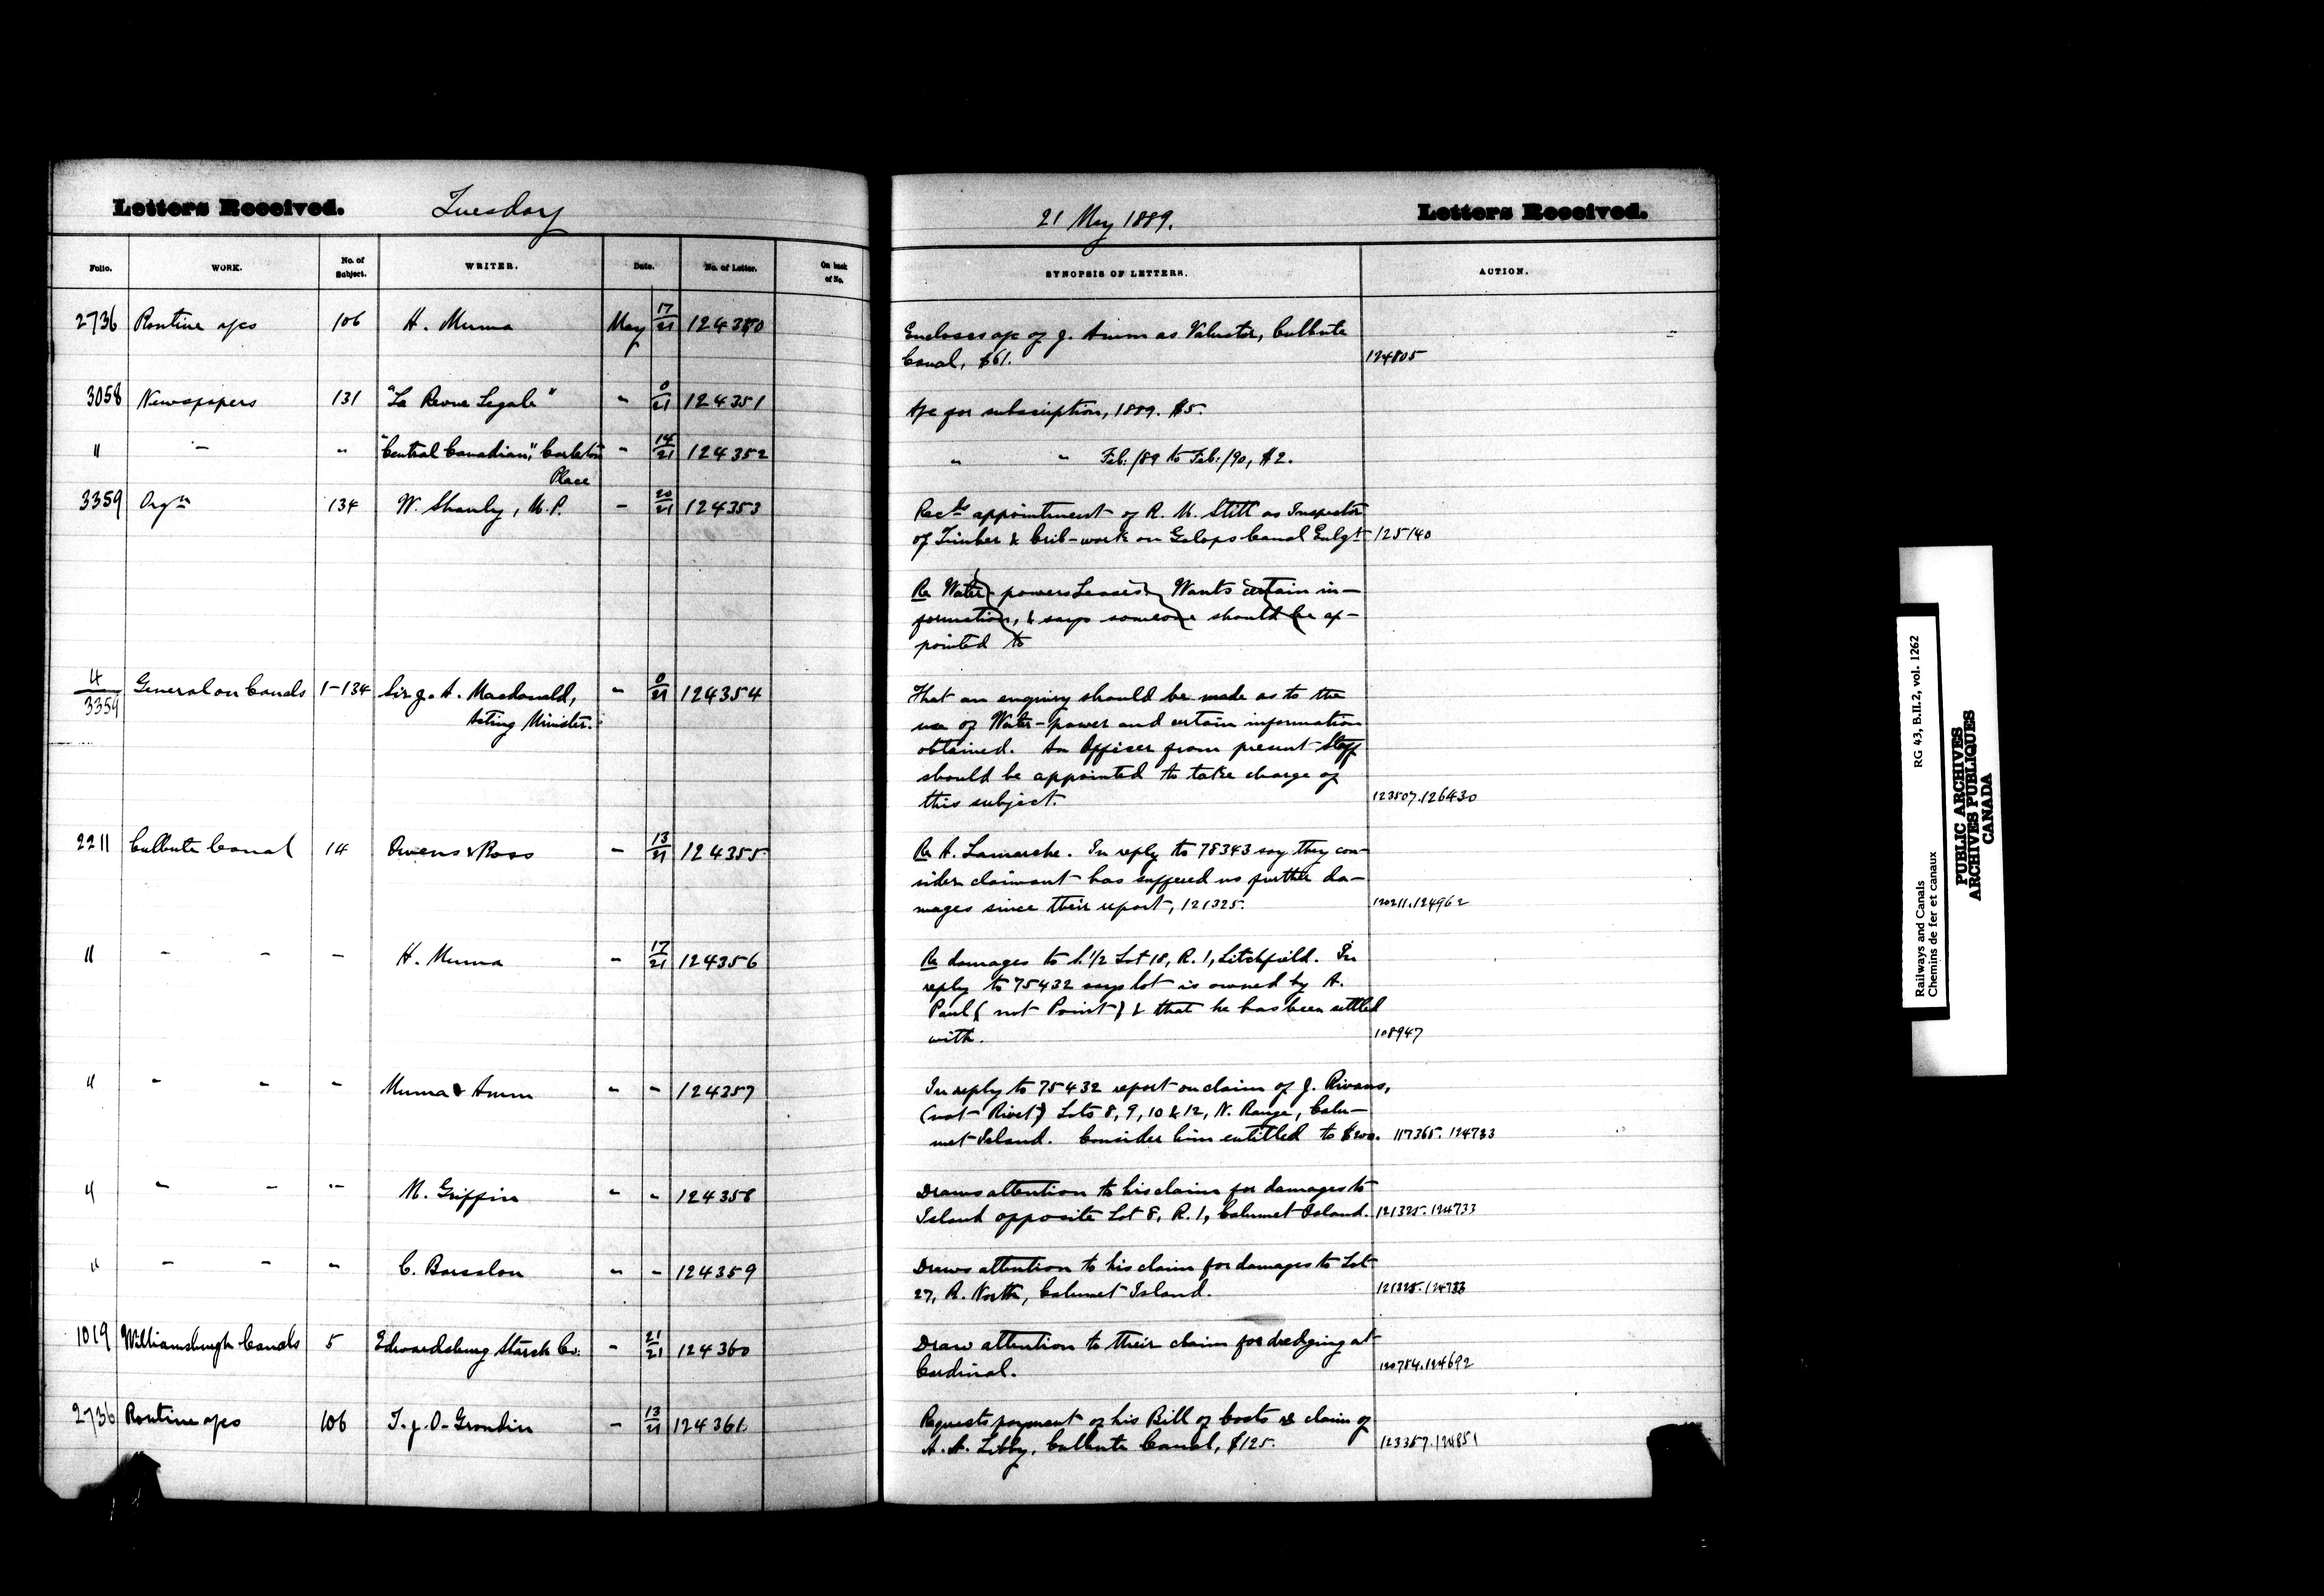 Letters Received. Tuesday
21 May 1889. Letters Received.
Folio. WORK. No. of Subject. WRITER. Date. No. of Letter. On back of No.
SYNOPSIS OF LETTERS. ACTION.
2736 Routine a/cs 106 H. Murma May 17/21 124350
Encloses a/c of J. Amm as Valuator, Culbute
Canal, $61. 124805
3058 Newspapers 131 "La Revue Legale" " 0/21 124351
A/c for subscription, 1889. $5.
" " " "Central Canadian," Carleton Place " 14/21 124352
" " Feb./89 to Feb./90, $2.
3359 Orgn 134 W. Shanly, M.P. " 20/21 124353
Recds appointment of R. M. Stitt as Inspector
of Timber & Crib-work on Galops Canal Enlgt 125140
Re Water-powers Leases Wants certain in-
formation, & says someone should be ap-
pointed to
4/3359 General on Canals 1-134 Sir J. A. Macdonald, Acting Minister. " 0/21 124354
That an enquiry should be made as to the
use of Water-power and certain information
obtained. An Officer from present Staff
should be appointed to take charge of
this subject. 123507.126430
2211 Culbute Canal 14 Owens & Ross " 13/21 124355
Re A. Lamarche. In reply to 78343 say they con-
sider claimant has suffered no further da-
mages since their report, 121325. 120211.124962
" " " " H. Murma " 17/21 124356
Re damages to S.1/2 Lot 18, R. 1, Litchfield. In
reply to 75432 says lot is owned by A.
Paul (not Point) & that he has been settled
with. 108947
" " " " Murma & Amm " " 124357
In reply to 75432 report on claim of J. Rivans,
(not Rivet) Lots 8, 9, 10 & 12, N. Range, Calu-
met Island. Consider him entitled to $200. 117365. 124733
" " " " M. Griffin " " 124358
Draws attention to his claim for damages to
Island opposite Lot 8, R. 1, Calumet Island. 121325.124733
" " " " C. Barsalou " " 124359
Draws attention to his claim for damages to Lot
27, R. North, Calumet Island. 121325.124733
1019 Williamsburgh Canals 5 Edwardsburg Starch Co. " 21/21 124360
Draw attention to their claim for dredging at
Cardinal. 120784.124692
2736 Routine a/cs 106 T. J. O. Grondin " 13/21 124361
Requests payment of his Bill of Costs re claim of
A. A. Libby, Culbute Canal, $125. 123357.124851
Railways and Canals RG 43, B.II.2, vol. 1262
Chemins de fer et canaux
PUBLIC ARCHIVES
ARCHIVES PUBLIQUES
CANADA